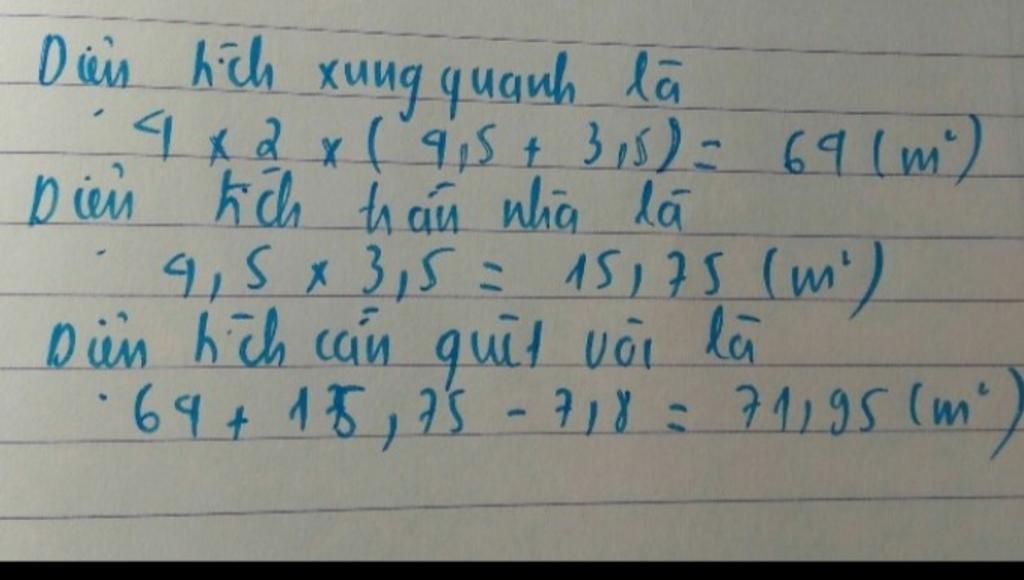 Diện tích xung quanh là
4 x 2 x ( 4,5 + 3,5) = 64 (m²)
Diện tích trần nhà là
4,5 x 3,5 = 15,75 (m²)
Diện tích cần quét vôi là
64 + 15,75 - 7,8 = 71,95 (m²)